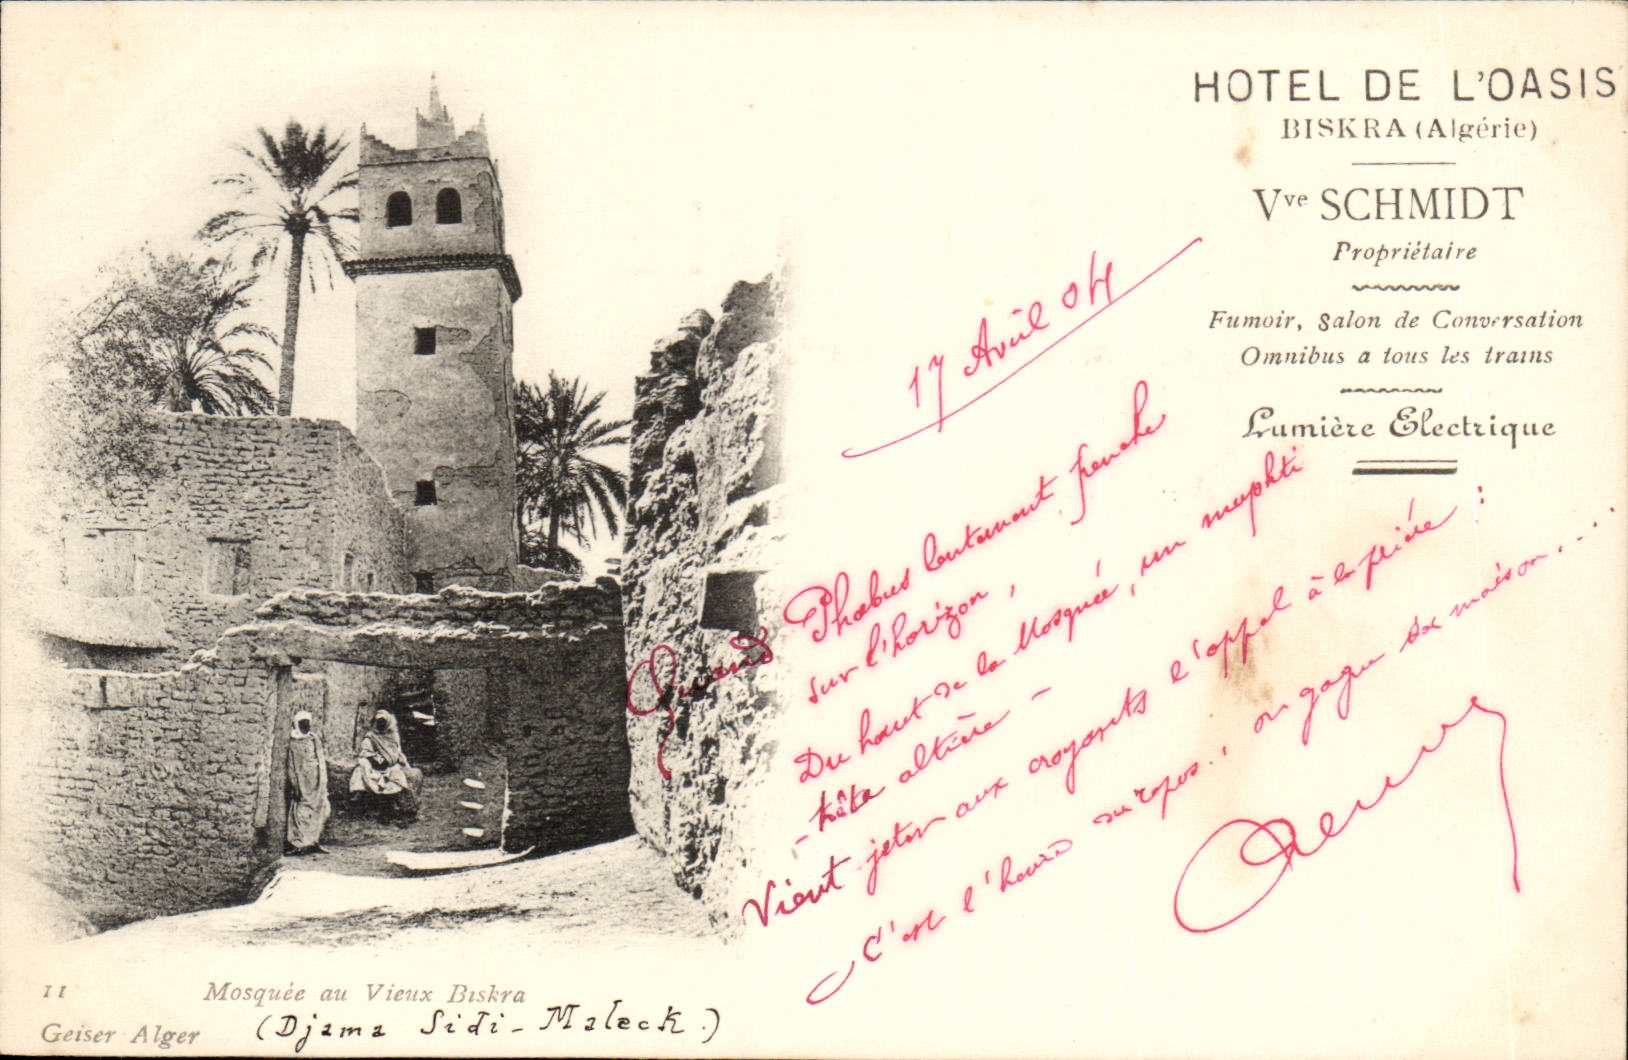 HOTEL DE L'OASIS
BISKRA (Algérie)
Vve SCHMIDT
Propriétaire
Fumoir, Salon de Conversation
Omnibus a tous les trains
Lumière Electrique
17 Avril 04
Quand Phœbus lentement penche
sur l'horizon,
Du haut de la Mosquée, un muphti
- tête altière -
Vient jeter aux croyants l'appel à la prière :
C'est l'heure du repos, on gagne sa maison....
11 Mosquée au Vieux Biskra
Geiser Alger (Djama Sidi-Maleck.)